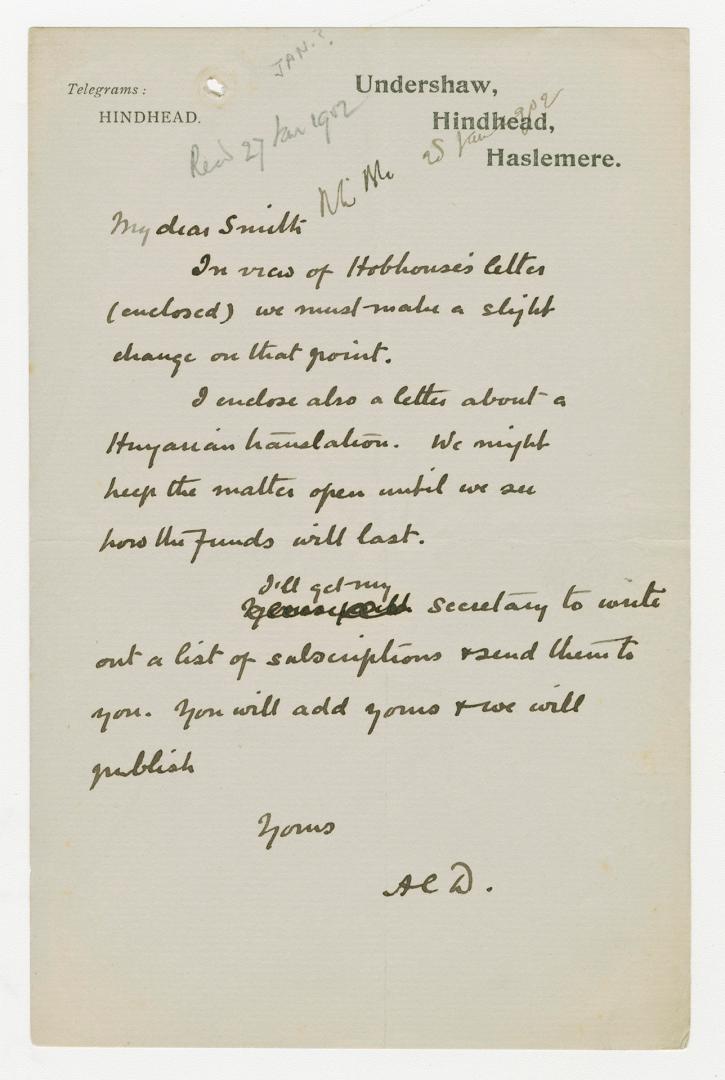 JAN. ?.
Telegrams:
HINDHEAD.
Undershaw,
Hindhead,
Haslemere.
Recd 27 Jan 1902
28 Jan 1902
My dear Smith
In view of Hobhouse's letter
(enclosed) we must make a slight
change on that point.
I enclose also a letter about a
Hungarian translation. We might
keep the matter open until we see
how the funds will last.
I'll get my
secretary to write
out a list of subscriptions & send them to
you. You will add yours & we will
publish
Yours
ACD.